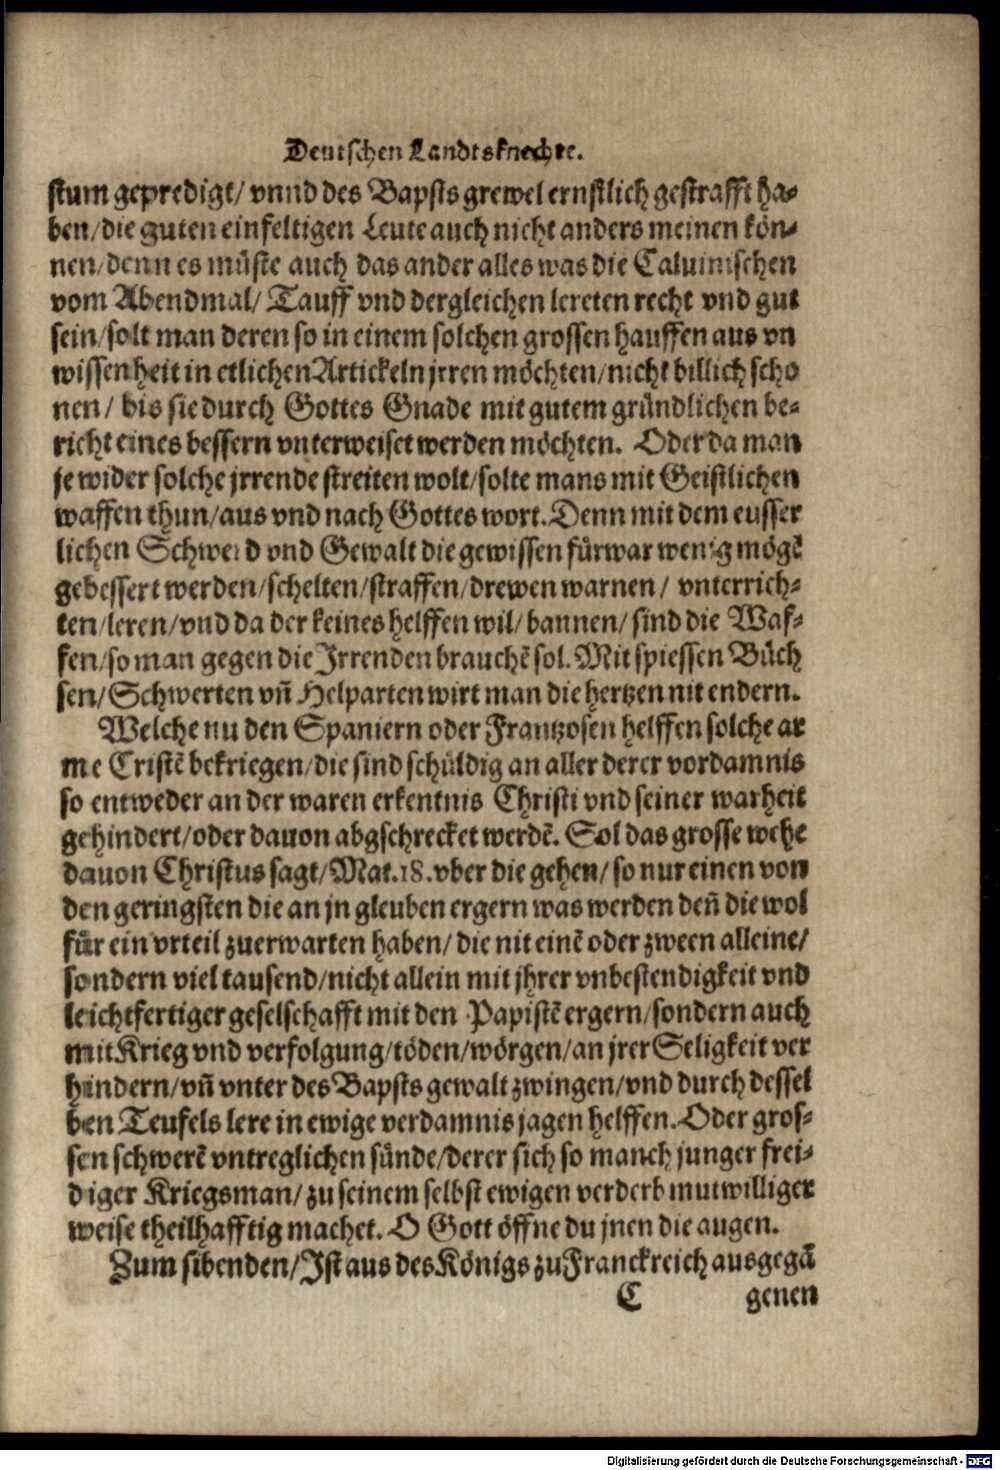 Deutschen Landtsknechte.
stum gepredigt/ vnnd des Bapsts grewel ernstlich gestrafft ha-
ben/die guten einfeltigen Leute auch nicht anders meinen kön-
nen/denn es müste auch das ander alles was die Caluinischen
vom Abendmal/ Tauff vnd dergleichen lereten recht vnd gut
sein/solt man deren so in einem solchen grossen hauffen aus vn
wissenheit in etlichen Artickeln jrren möchten/nicht billich scho
nen/ bis sie durch Gottes Gnade mit gutem gründlichen be-
richt eines bessern vnterweiset werden möchten. Oder da man
je wider solche jrrende streiten wolt/solte mans mit Geistlichen
waffen thun/aus vnd nach Gottes wort. Denn mit dem eusser
lichen Schwerd vnd Gewalt die gewissen fürwar wenig mögẽ
gebessert werden/schelten/straffen/drewen warnen/ vnterrich-
ten/leren/vnd da der keines helffen wil/ bannen/ sind die Waf-
fen/so man gegen die Jrrenden brauchẽ sol. Mit spiessen Büch
sen/Schwerten vñ Helparten wirt man die hertzen nit endern.
Welche nu den Spaniern oder Frantzosen helffen solche ar
me Cristẽ bekriegen/die sind schüldig an aller derer vordamnis
so entweder an der waren erkentnis Christi vnd seiner warheit
gehindert/oder dauon abgschrecket werdẽ. Sol das grosse wehe
dauon Christus sagt/Mat.18.vber die gehen/so nur einen von
den geringsten die an jn gleuben ergern was werden deñ die wol
für ein vrteil zuerwarten haben/die nit einẽ oder zween alleine/
sondern viel tausend/nicht allein mit jhrer vnbestendigkeit vnd
leichtfertiger geselschafft mit den Papistẽ ergern/sondern auch
mit Krieg vnd verfolgung/töden/wörgen/an jrer Seligkeit ver
hindern/vñ vnter des Bapsts gewalt zwingen/vnd durch dessel
ben Teufels lere in ewige verdamnis jagen helffen. O der gros-
sen schwerẽ vntreglichen sünde/derer sich so manch junger frei-
diger Kriegsman/ zu seinem selbst ewigen verderb mutwilliger
weise theilhafftig machet. O Gott öffne du jnen die augen.
Zum sibenden/Jst aus des Königs zu Franckreich ausgegã
C genen
Digitalisierung gefördert durch die Deutsche Forschungsgemeinschaft - DFG